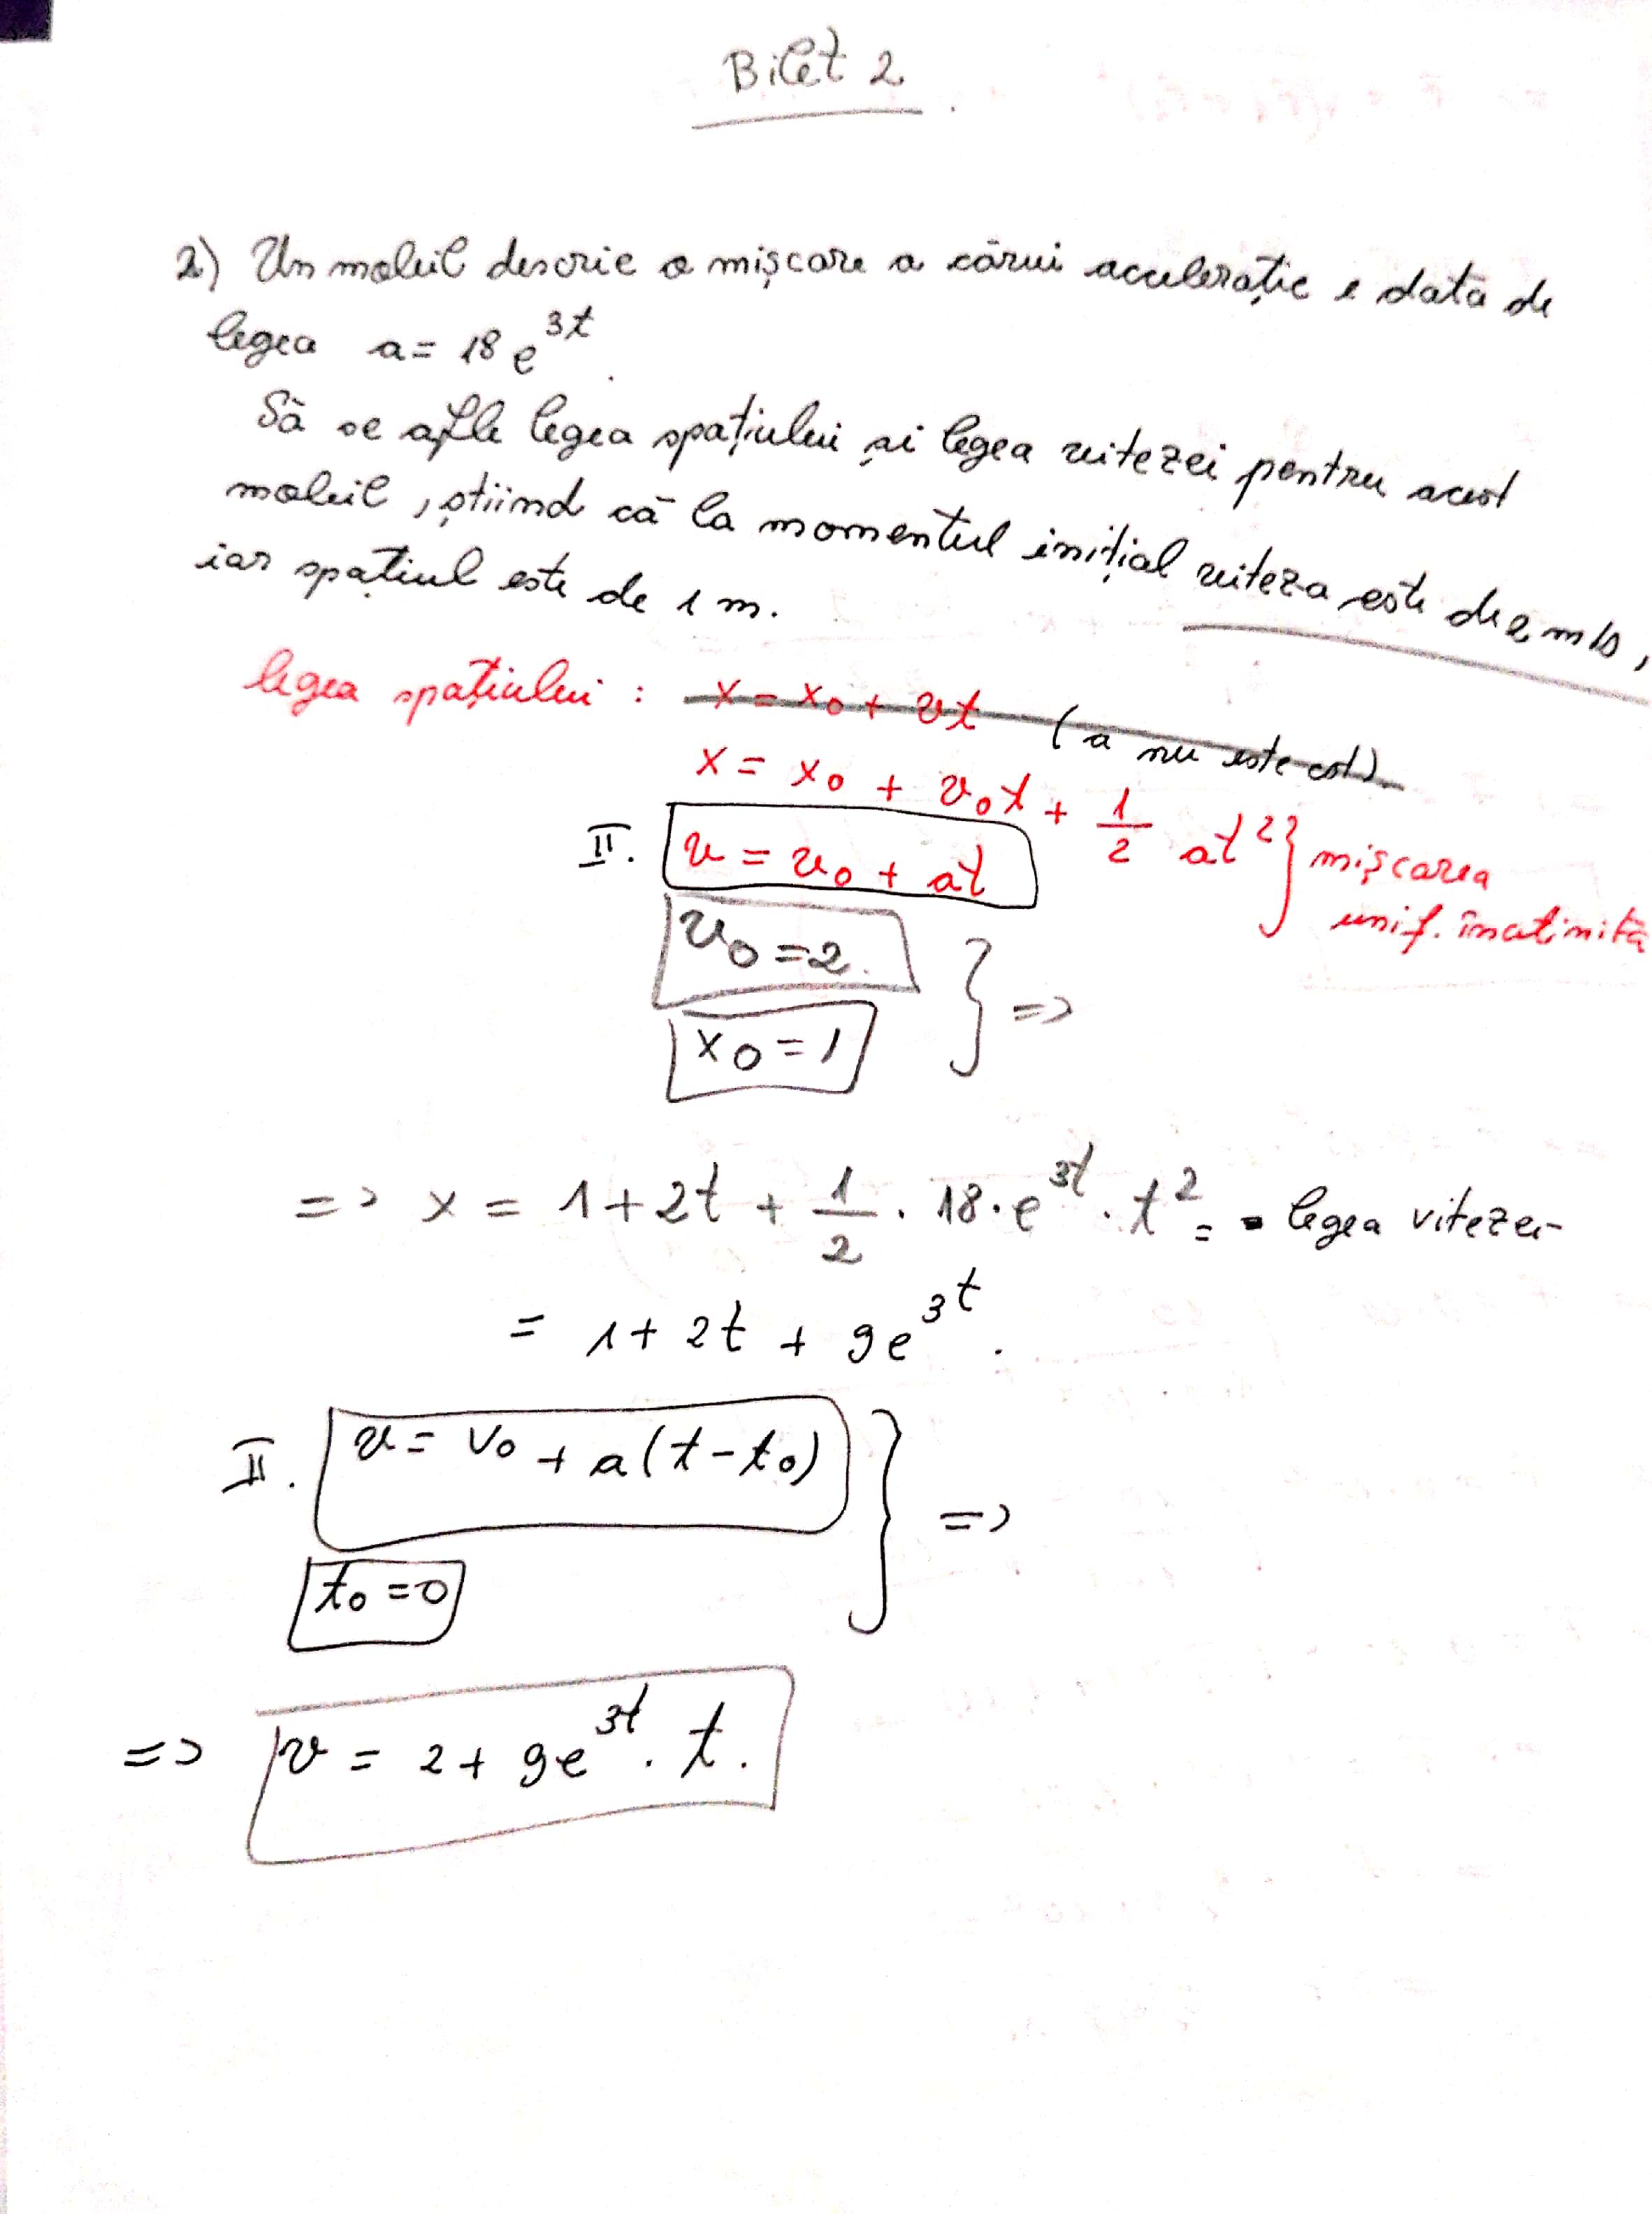 Bilet 2
2) Un mobil descrie o mișcare a cărui accelerație e data de
legea a = 18 e^{3t}.
Să se afle legea spațiului și legea vitezei pentru acest
mobil, știind că la momentul inițial viteza este de 2 m/s,
iar spațiul este de 1 m.
legea spațiului : x = x₀ + vt (a nu este ct)
x = x₀ + v₀t + 1/2 at² } mișcarea
II. v = v₀ + at unif.
v₀ = 2. } =>
x₀ = 1
=> x = 1 + 2t + 1/2 · 18 · e^{3t} · t² = legea vitezei
= 1 + 2t + 9e^{3t}.
II. v = v₀ + a(t - t₀) } =>
t₀ = 0
=> v = 2 + 9e^{3t} · t.